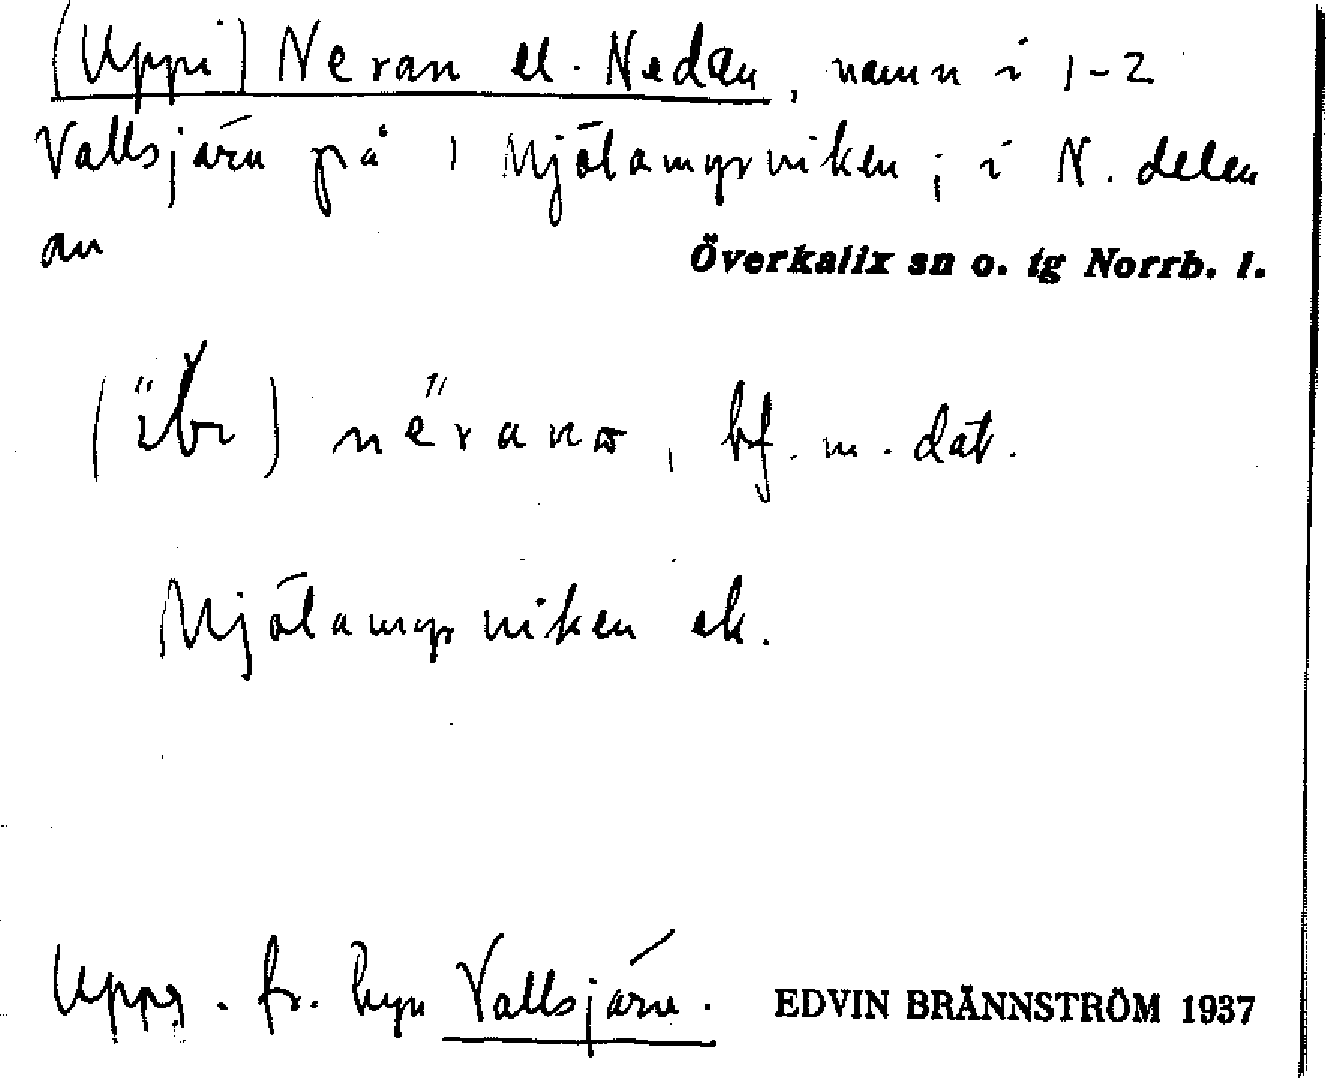 (Uppi) Neran el. Nedan, namn i 1-2
Vallsjärn på 1 Mjölamyrviken; i N. delen
av
Överkalix sn o. tg Norrb. l.
nērana, bf. m. dat.
Mjölamyrviken ek.
Uppg. fr. byn Vallsjärn.
EDVIN BRÄNNSTRÖM 1937